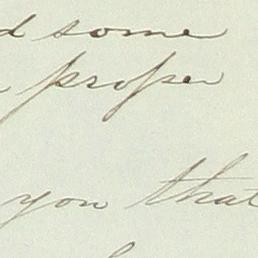 some
proper
you that